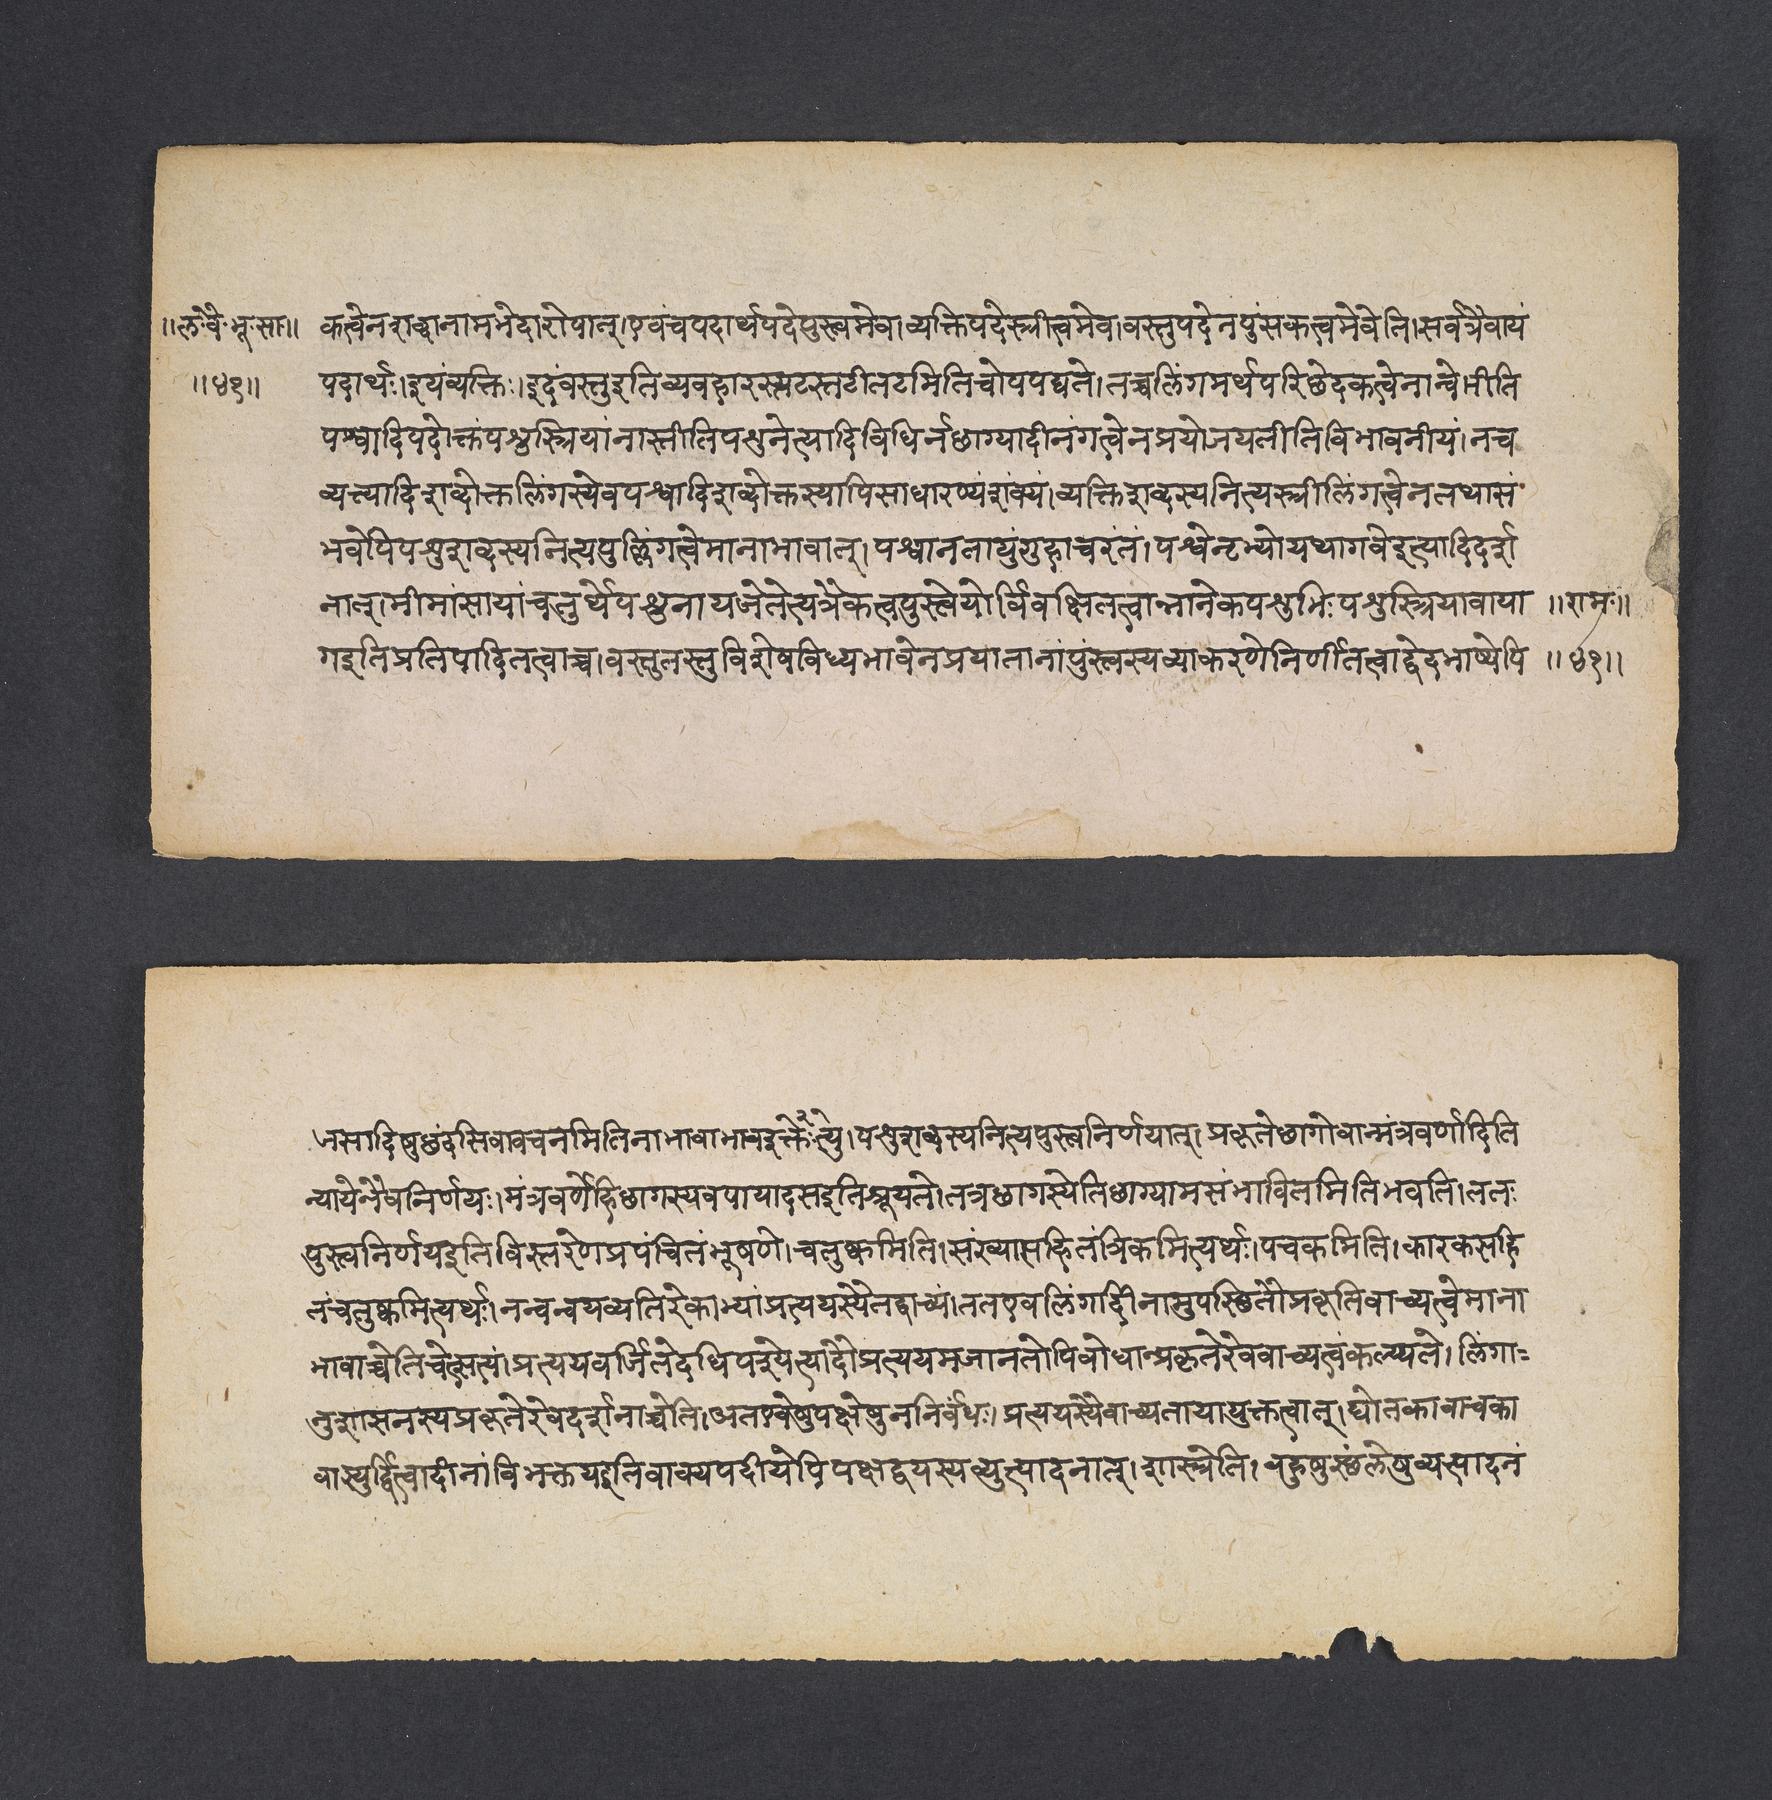 ॥ल॰वै॰भू॰सा॥ कत्वेनशब्दानामभेदारोपात्।एवंचपदार्थपदेपुंस्त्वमेव।व्यक्तिपदेस्त्रीत्वमेव।वस्तुपदेनपुंसकत्वमेवेति।सर्वत्रैवायं
॥४१॥ पदार्थः।इयंव्यक्तिः।इदंवस्तुइतिव्यवहारस्यतटस्तटीतटमितिचोपपद्यते।तच्चलिंगमर्थपरिछेदकत्वेनान्वेमीति
पश्वादिपदोक्तंपशुस्त्रियांनास्तीतिपशुनेत्यादिविधिर्नछाग्यादीनंगत्वेनप्रयोजयतीतिविभावनीयं।नच
व्यत्त्यादिशब्दोक्तलिंगस्येवपश्वादिशब्दोक्तस्यापिसाधारण्यंशंक्यं।व्यक्तिशब्दस्यनित्यस्त्रीलिंगत्वेनतथासं
भवेपिपशुशब्दस्यनित्यपुल्लिंगत्वेमानाभावात्।पश्वानतायुंगुहाचरंतं।पश्वेनृभ्योयथागवेइत्यादिदर्श
नात्।मीमांसायांचतुर्थेपशुनायजेतेत्यत्रैकत्वपुंस्त्वेयोर्विवक्षितत्वान्नानेकपशुभिःपशुस्त्रियावाया ॥रामः॥
गइतिप्रतिपादितत्वाच्च।वस्तुतस्तुविशेषविध्यभावेनप्रयातानांपुंस्त्वस्यव्याकरणेनिर्णीतत्वाद्वेदभाष्येपि ॥४१॥
जसादिषुछंदसिवावचनमितिनाभावाभावइत्युक्तेः।पशुशब्दस्यनित्यपुंस्त्वनिर्णयात्।प्रकृतेछागोवान्मंत्रवर्णादिति
न्यायेनैवनिर्णयः।मंत्रवर्णेहिछागस्यवपायादसइतिश्रूयते।तत्रछागस्येतिछाग्यामसंभावितमितिभवति।ततः
पुंस्त्वनिर्णयइतिविस्तरेणप्रपंचितंभूषणे।चतुष्कमिति।संख्यासहितंत्रिकमित्यर्थः।पचकमिति।कारकसहि
तंचतुष्कमित्यर्थः।नन्वन्वयव्यतिरेकाभ्यांप्रत्ययस्यैतद्वाच्यं।ततएवलिंगादीनामुपस्थितौप्रकृतिवाच्यत्वेमाना
भावाच्चेतिचेत्सत्यं।प्रत्ययवर्जितेदधिपश्येत्यादौप्रत्ययमजानतोपिबोधात्प्रकृतेरेववाच्यत्वंकल्प्यते।लिंगा-
नुशासनस्यप्रकृतेरेवदर्शनाच्चेति।अतएवैषुपक्षेषुननिर्बंधः।प्रत्ययस्यैवाच्यतायायुक्तत्वात्।द्योतकावाचका
वास्युर्द्वित्वादीनांविभक्तयइतिवाक्यपदीयेपिपक्षद्वयस्यव्युत्पादनात्।शास्त्रेति।बहुषुस्थलेषुव्यत्पादनं